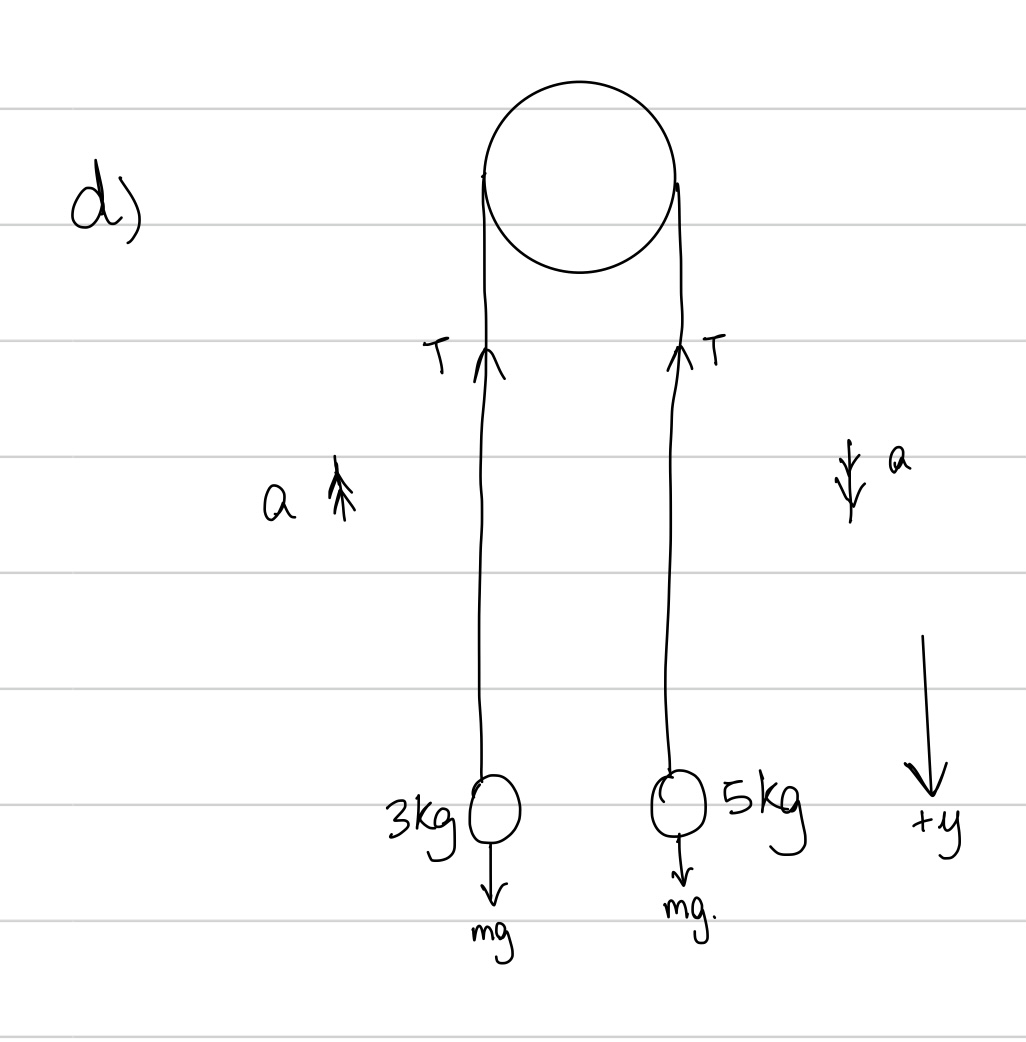 d)
T T
a a
3kg 5kg
+y
mg mg.